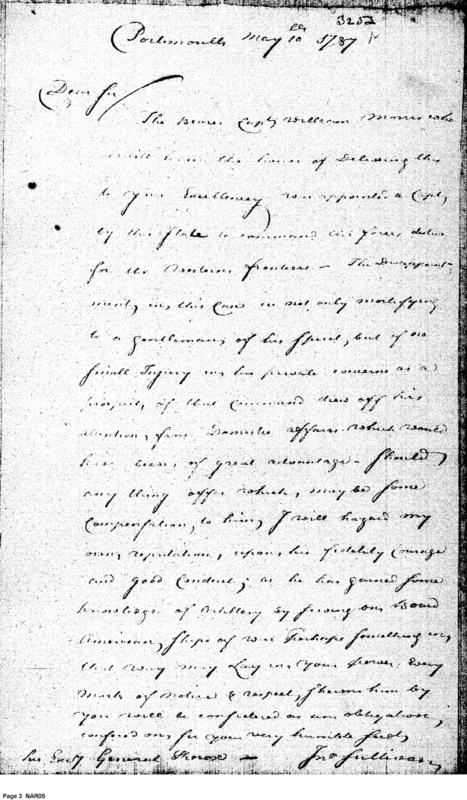 3252
Portsmouth May 10th 1787
Dear Sir
The Bearer Capt William Morris who
will have the honor of Delivering this
to your Excellency was appointed a Capt
by this State to command the forces
for the Western frontiers – The Disappoint
ment, in this Case is not only mortifying
to a gentleman of his spirit, but of no
small Injury in his private concerns as a
of that Command drew off his
attention, from Domestic affairs which would
have been of great advantage – Should
any thing offer which may be some
Compensation, to him, I will hazard my
own reputation, upon his fidelity Courage
and Good Conduct; as he has gained some
knowledge of Artillery by serving on Board
American Ships of war Perhaps something in
that way may Lay in Your power: Every
Mark of Notice & respect, shewn him by
You will be considered as an obligation,
confered on Sir your very humble Servt
his Excy General Knox – Jno Sullivan
Page 3 NAR05